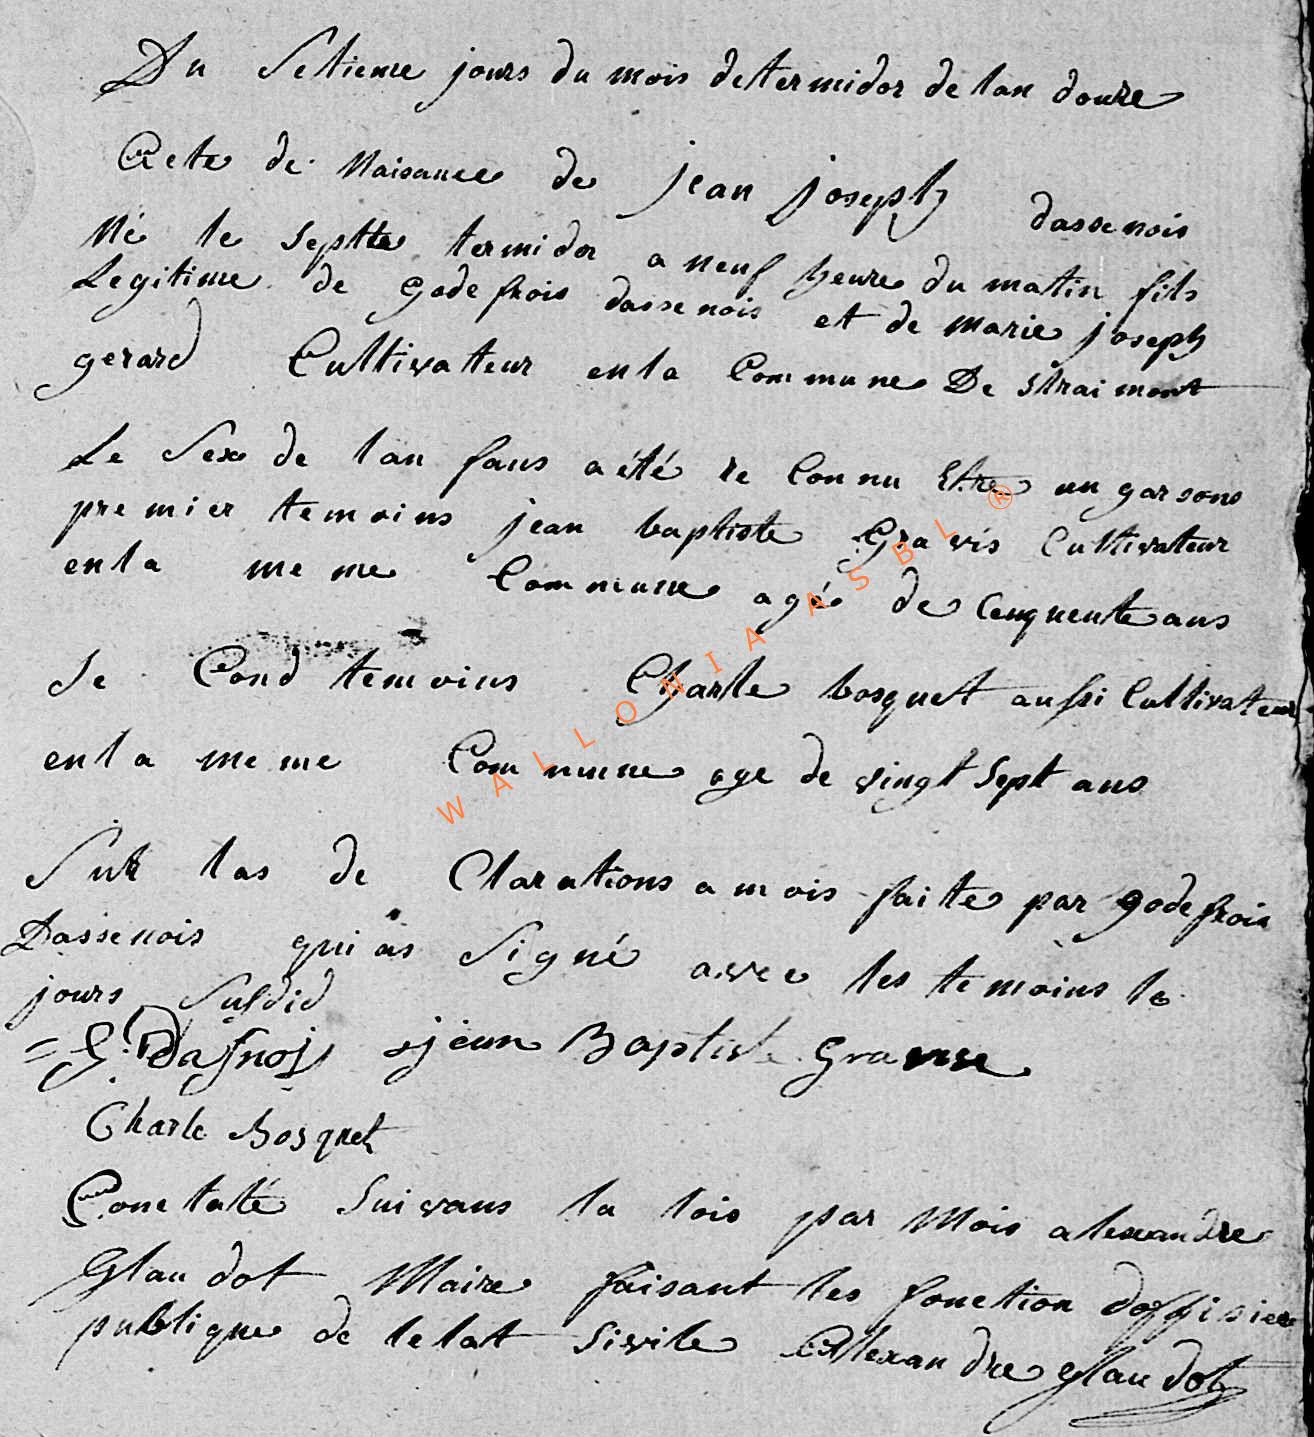 Du Setieme jours du mois de termidor de lan douze
Acte de Naisance de jean joseph dassenois
Né le Septte termidor a neuf heure du matin fils
Legitime de godefrois dassenois et de marie joseph
gerard Cultivateur en la Commune De Straimont
Le Sexe de lan fans a été re Connu Etre un garsons
premier temoins jean baptiste Gravis Cultivateur
en la meme Commune agé de Cenquente ans
Se Cond temoins Charle bosquet aussi Cultivateur
en la meme Commune age de vingt Sept ans
Sur las de Clarations a mois faite par godefrois
Dassenois qui as Signé avec les temoins le
jours Susdid
= G: Dasnois jean Baptiste
Charle Bosquet
Constaté Suivans la lois par Mois alexandre
Glaudot Maire faisant les fonction doffisier
publique de letat Sivile Alexandre glaudot
WALLONIA ASBL ®